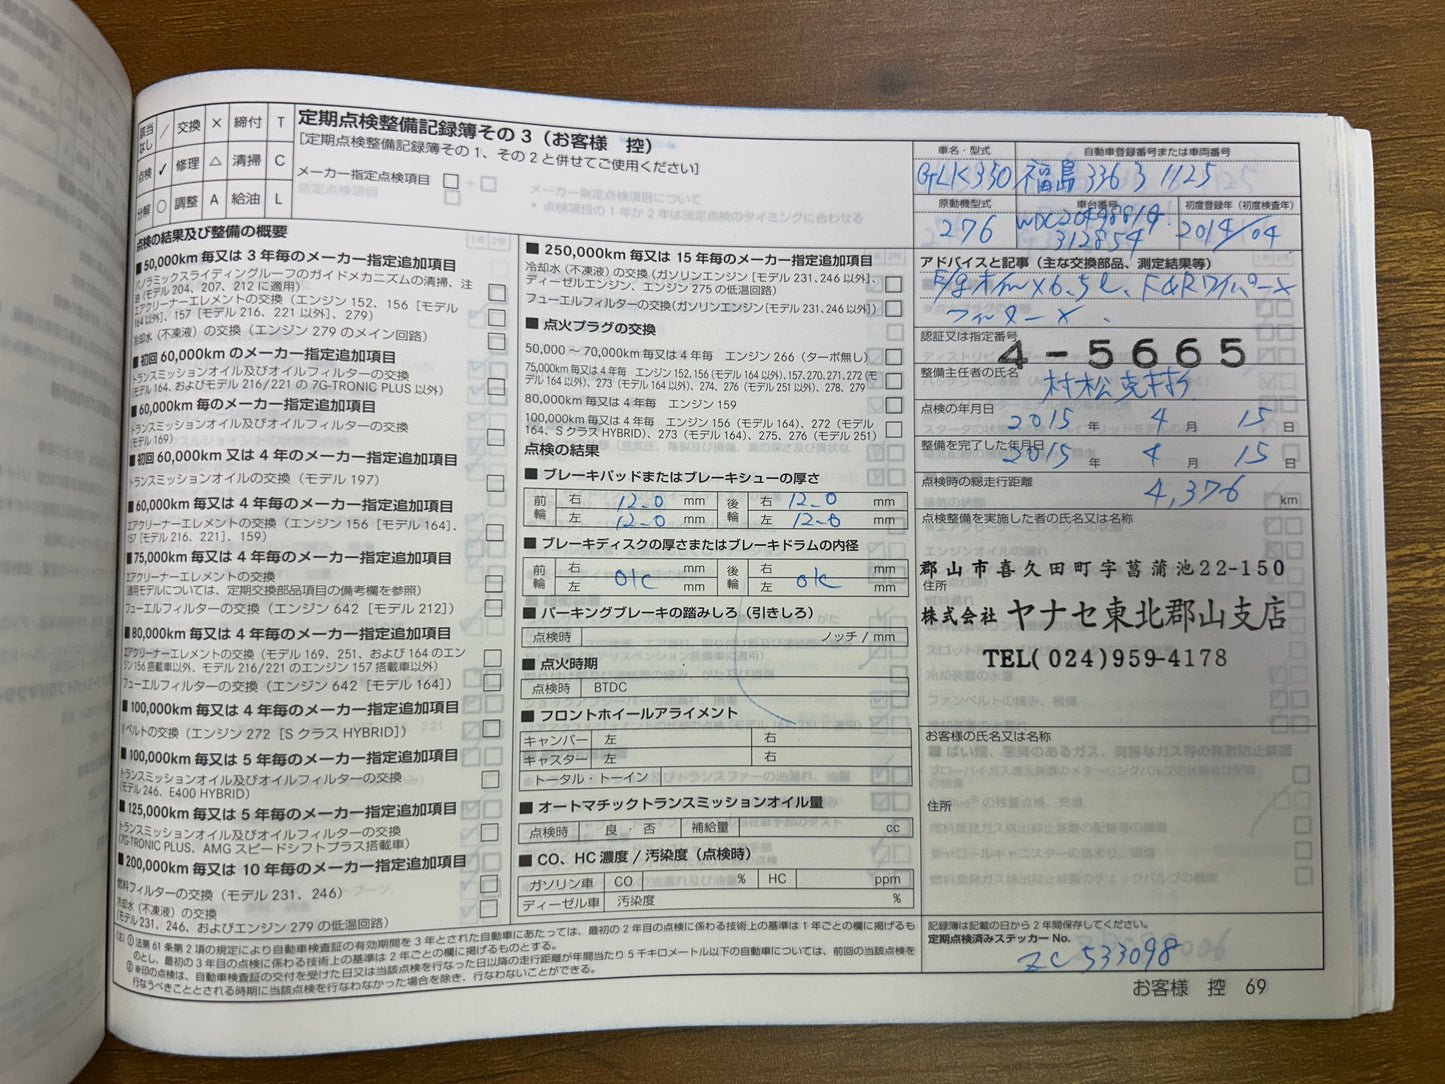 該当なし / 交換 × 締付 T
点検 ✓ 修理 △ 清掃 C
分解 ○ 調整 A 給油 L
定期点検整備記録簿その3（お客様 控）
［定期点検整備記録簿その1、その2と併せてご使用ください］
メーカー指定点検項目 □ + □
点検の結果及び整備の概要
■ 50,000km 毎又は 3 年毎のメーカー指定追加項目
パノラミックスライディングルーフのガイドメカニズムの清掃、注油（モデル 204、207、212 に適用）
エアクリーナーエレメントの交換（エンジン 152、156［モデル 164 以外］、157［モデル 216、221 以外］、279）
冷却水（不凍液）の交換（エンジン 279 のメイン回路）
■ 初回 60,000km のメーカー指定追加項目
トランスミッションオイル及びオイルフィルターの交換
（モデル 164、およびモデル 216/221 の 7G-TRONIC PLUS 以外）
■ 60,000km 毎のメーカー指定追加項目
トランスミッションオイル及びオイルフィルターの交換
（モデル 169）
■ 初回 60,000km 又は 4 年毎のメーカー指定追加項目
トランスミッションオイルの交換（モデル 197）
■ 60,000km 毎又は 4 年毎のメーカー指定追加項目
エアクリーナーエレメントの交換（エンジン 156［モデル 164］、157［モデル 216、221］、159）
■ 75,000km 毎又は 4 年毎のメーカー指定追加項目
エアクリーナーエレメントの交換
（適用モデルについては、定期交換部品項目の備考欄を参照）
フューエルフィルターの交換（エンジン 642［モデル 212］）
■ 80,000km 毎又は 4 年毎のメーカー指定追加項目
エアクリーナーエレメントの交換（モデル 169、251、および 164 のエンジン 156 搭載車以外、モデル 216/221 のエンジン 157 搭載車以外）
フューエルフィルターの交換（エンジン 642［モデル 164］）
■ 100,000km 毎又は 4 年毎のメーカー指定追加項目
V ベルトの交換（エンジン 272［S クラス HYBRID］）
■ 100,000km 毎又は 5 年毎のメーカー指定追加項目
トランスミッションオイル及びオイルフィルターの交換
（モデル 246、E400 HYBRID）
■ 125,000km 毎又は 5 年毎のメーカー指定追加項目
トランスミッションオイル及びオイルフィルターの交換
（7G-TRONIC PLUS、AMG スピードシフトプラス搭載車）
■ 200,000km 毎又は 10 年毎のメーカー指定追加項目
燃料フィルターの交換（モデル 231、246）
冷却水（不凍液）の交換
（モデル 231、246、およびエンジン 279 の低温回路）
■ 250,000km 毎又は 15 年毎のメーカー指定追加項目
冷却水（不凍液）の交換（ガソリンエンジン［モデル 231、246 以外］、ディーゼルエンジン、エンジン 275 の低温回路）
フューエルフィルターの交換（ガソリンエンジン［モデル 231、246 以外］）
■ 点火プラグの交換
50,000 ～ 70,000km 毎又は 4 年毎 エンジン 266（ターボ無し）
75,000km 毎又は 4 年毎 エンジン 152、156（モデル 164 以外）、157、270、271、272（モデル 164 以外）、273（モデル 164 以外）、274、276（モデル 251 以外）、278、279
80,000km 毎又は 4 年毎 エンジン 159
100,000km 毎又は 4 年毎 エンジン 156（モデル 164）、272（モデル 164、S クラス HYBRID）、273（モデル 164）、275、276（モデル 251）
点検の結果
■ ブレーキパッドまたはブレーキシューの厚さ
前輪 右 12.0 mm 後輪 右 12.0 mm
左 12.0 mm 左 12.0 mm
■ ブレーキディスクの厚さまたはブレーキドラムの内径
前輪 右 mm 後輪 右 mm
左 ok mm 左 ok mm
■ パーキングブレーキの踏みしろ（引きしろ）
点検時 ノッチ / mm
■ 点火時期
点検時 BTDC
■ フロントホイールアライメント
キャンバー 左 右
キャスター 左 右
トータル・トーイン
■ オートマチックトランスミッションオイル量
点検時 良 ・ 否 補給量 cc
■ CO、HC 濃度 / 汚染度（点検時）
ガソリン車 CO % HC ppm
ディーゼル車 汚染度 %
車名・型式 自動車登録番号または車両番号
GLK350 福島 336 ヨ 1125
原動機型式 車台番号 初度登録年（初度検査年）
276 WDC2049881G312854 2014/04
アドバイスと記事（主な交換部品、測定結果等）
E/gオイル×6.5L、F&Rワイパー×
フィルター×.
認証又は指定番号
4-5665
整備主任者の氏名
村松
点検の年月日
2015 年 4 月 15 日
整備を完了した年月日
2015 年 4 月 15 日
点検時の総走行距離
4,376 km
点検整備を実施した者の氏名又は名称
郡山市喜久田町字菖蒲池22-150
住所
株式会社 ヤナセ東北郡山支店
TEL(024)959-4178
お客様の氏名又は名称
住所
記録簿は記載の日から 2 年間保存してください。
定期点検済みステッカー No.
ZC 533098
（注）① 法第 61 条第 2 項の規定により自動車検査証の有効期間を 3 年とされた自動車にあたっては、最初の 2 年目の点検に係わる技術上の基準は 1 年ごとの欄に掲げるものとし、最初の 3 年目の点検に係わる技術上の基準は 2 年ごとの欄に掲げるものとする。
② ※印の点検は、自動車検査証の交付を受けた日又は当該点検を行なった日以降の走行距離が年間当たり 5 千キロメートル以下の自動車については、前回の当該点検を行なうべきこととされる時期に当該点検を行なわなかった場合を除き、行なわないことができる。
お客様 控 69